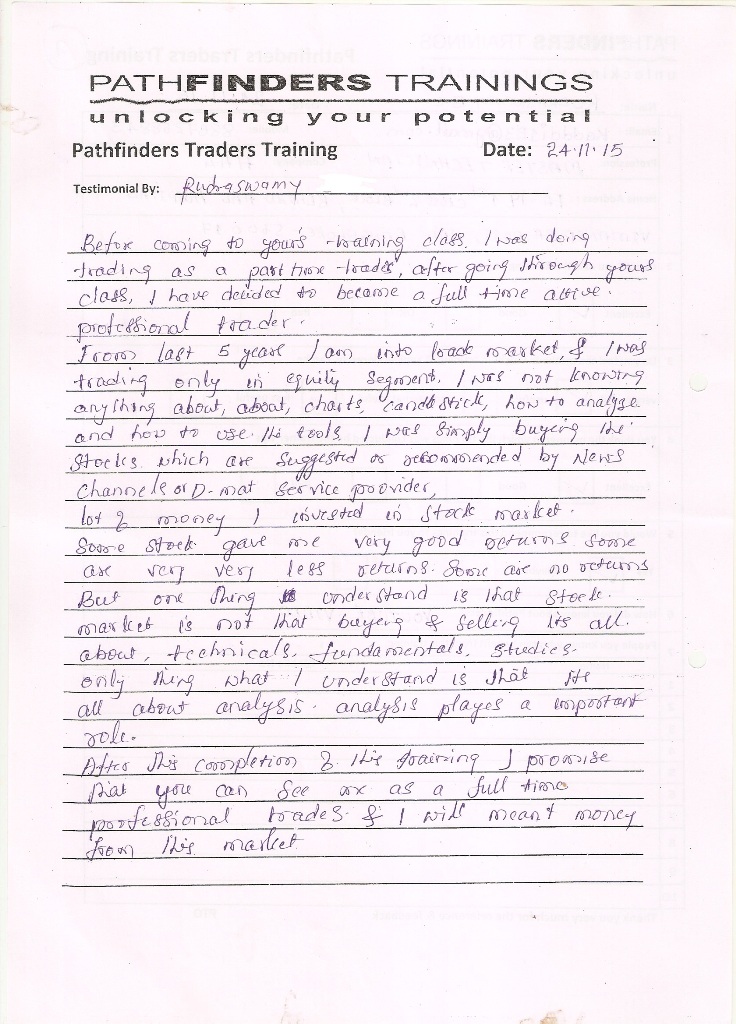 PATHFINDERS TRAININGS
unlocking your potential
Pathfinders Traders Training Date: 24.11.15
Testimonial By: Rudraswamy
Before coming to your's training class. I was doing
trading as a part time trader, after going through yours
class, I have decided to become a full time active.
professional trader.
From last 5 years I am into trade market, & I was
trading only in equity segment. I was not knowing
anything about, about, charts, candlestick, how to analyse
and how to use the tools, I was simply buyeing the
stocks which are suggested or recommended by News
channels or D-mat service proovider,
lot of money I invested in stock market.
Some stock gave me very good returns some
are very very less returns. Some are no returns
But one thing understand is that stock.
market is not that buyeing & selling its all.
about, technicals, fundamentals, studies.
only thing what I understand is that its
all about analysis. analysis playes a important
role.
After this completion of this training I promise
that you can see me as a full time
professional trader & I will meant money
from this market.